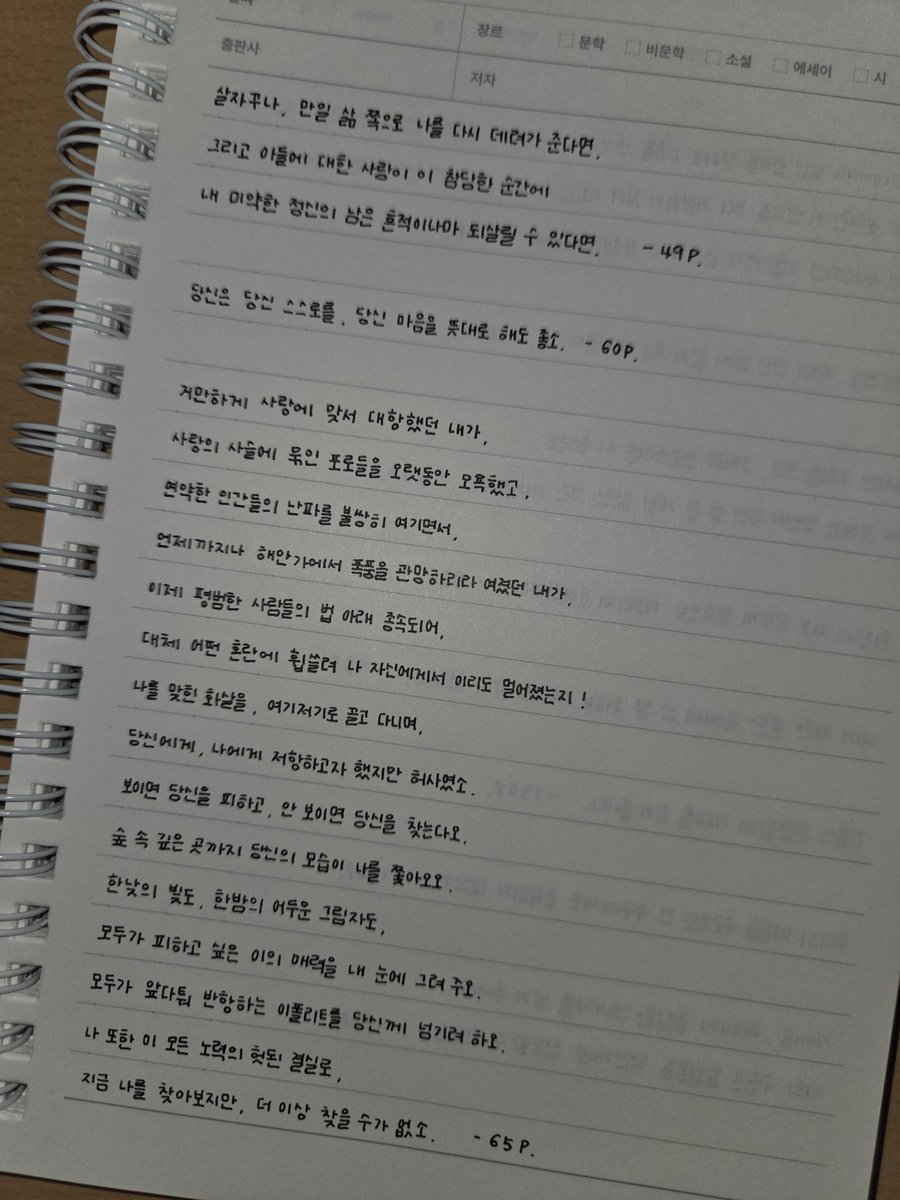 장르 문학 비문학 소설 에세이 시
출판사
저자
살자꾸나, 만일 삶 쪽으로 나를 다시 데려가 준다면,
그리고 아들에 대한 사랑이 이 참담한 순간에
내 미약한 정신의 남은 흔적이나마 되살릴 수 있다면. - 49P.
당신은 당신 스스로를, 당신 마음을 뜻대로 해도 좋소. - 60P.
거만하게 사랑에 맞서 대항했던 내가,
사랑의 사슬에 묶인 포로들을 오랫동안 모욕했고,
연약한 인간들의 난파를 불쌍히 여기면서,
언제까지나 해안가에서 폭풍을 관망하리라 여겼던 내가,
이제 평범한 사람들의 법 아래 종속되어,
대체 어떤 혼란에 휩쓸려 나 자신에게서 이리도 멀어졌는지!
나를 맞힌 화살을, 여기저기로 끌고 다니며,
당신에게, 나에게 저항하고자 했지만 허사였소.
보이면 당신을 피하고, 안 보이면 당신을 찾는다오.
숲 속 깊은 곳까지 당신의 모습이 나를 쫓아오오.
한낮의 빛도, 한밤의 어두운 그림자도,
모두가 피하고 싶은 이의 매력을 내 눈에 그려 주오.
모두가 앞다퉈 반항하는 이폴리트를 당신께 넘기려 하오.
나 또한 이 모든 노력의 헛된 결실로,
지금 나를 찾아보지만, 더 이상 찾을 수가 없소. - 65P.